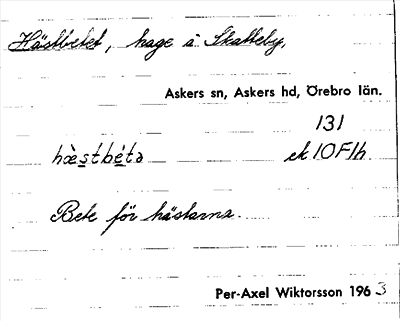 Hästbetet, hage å Skatteby,
Askers sn, Askers hd, Örebro län.
131
hæ̀stbétə ek 10F1h.
Bete för hästarna.
Per-Axel Wiktorsson 1963